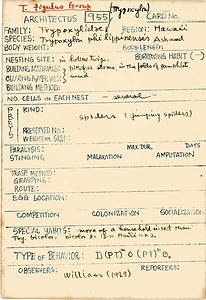 T. figulus Group
(Trypoxylon)
ARCHITECTUS 955 CARD NO.
FAMILY: Trypoxylidae REGION: Hawaii
SPECIES: Trypoxylon philippinensis Ashmead
BODY WEIGHT: BODY LENGTH:
NESTING SITE: in hollow twigs. BURROWING HABIT (-)
BUILDING MATERIALS: in the folds of pamphlet.
CLOSING MATERIALS: mud
BUILDING METHOD:
NO. CELLS IN EACH NEST — several
PREY
KIND: spiders (jumping spiders)
PRESERVED NO.:
WEIGHT OR SIZE:
PARALYSIS: MAX. DUR. DAYS
STINGING MALAXATION AMPUTATION
TRASP. METHOD:
GRASPING:
ROUTE:
EGG LOCATION:
COMPETITION COLONIZATION SOCIALIZATION
SPECIAL HABITS: more of a household insect than
Try. bicolor.
TYPE OF BEHAVIOR:
OBSERVERS: REPORTERS:
Williams (1929)